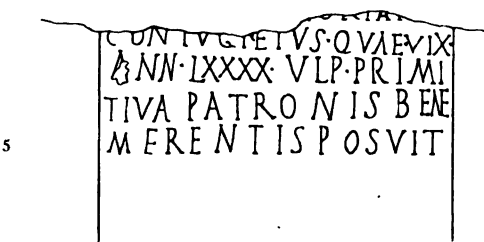 CONIVGI EIVS · QVAE · VIX ·
ANN · LXXXX · VLP · PRIMI
TIVA PATRONIS BENE
5 MERENTIS POSVIT